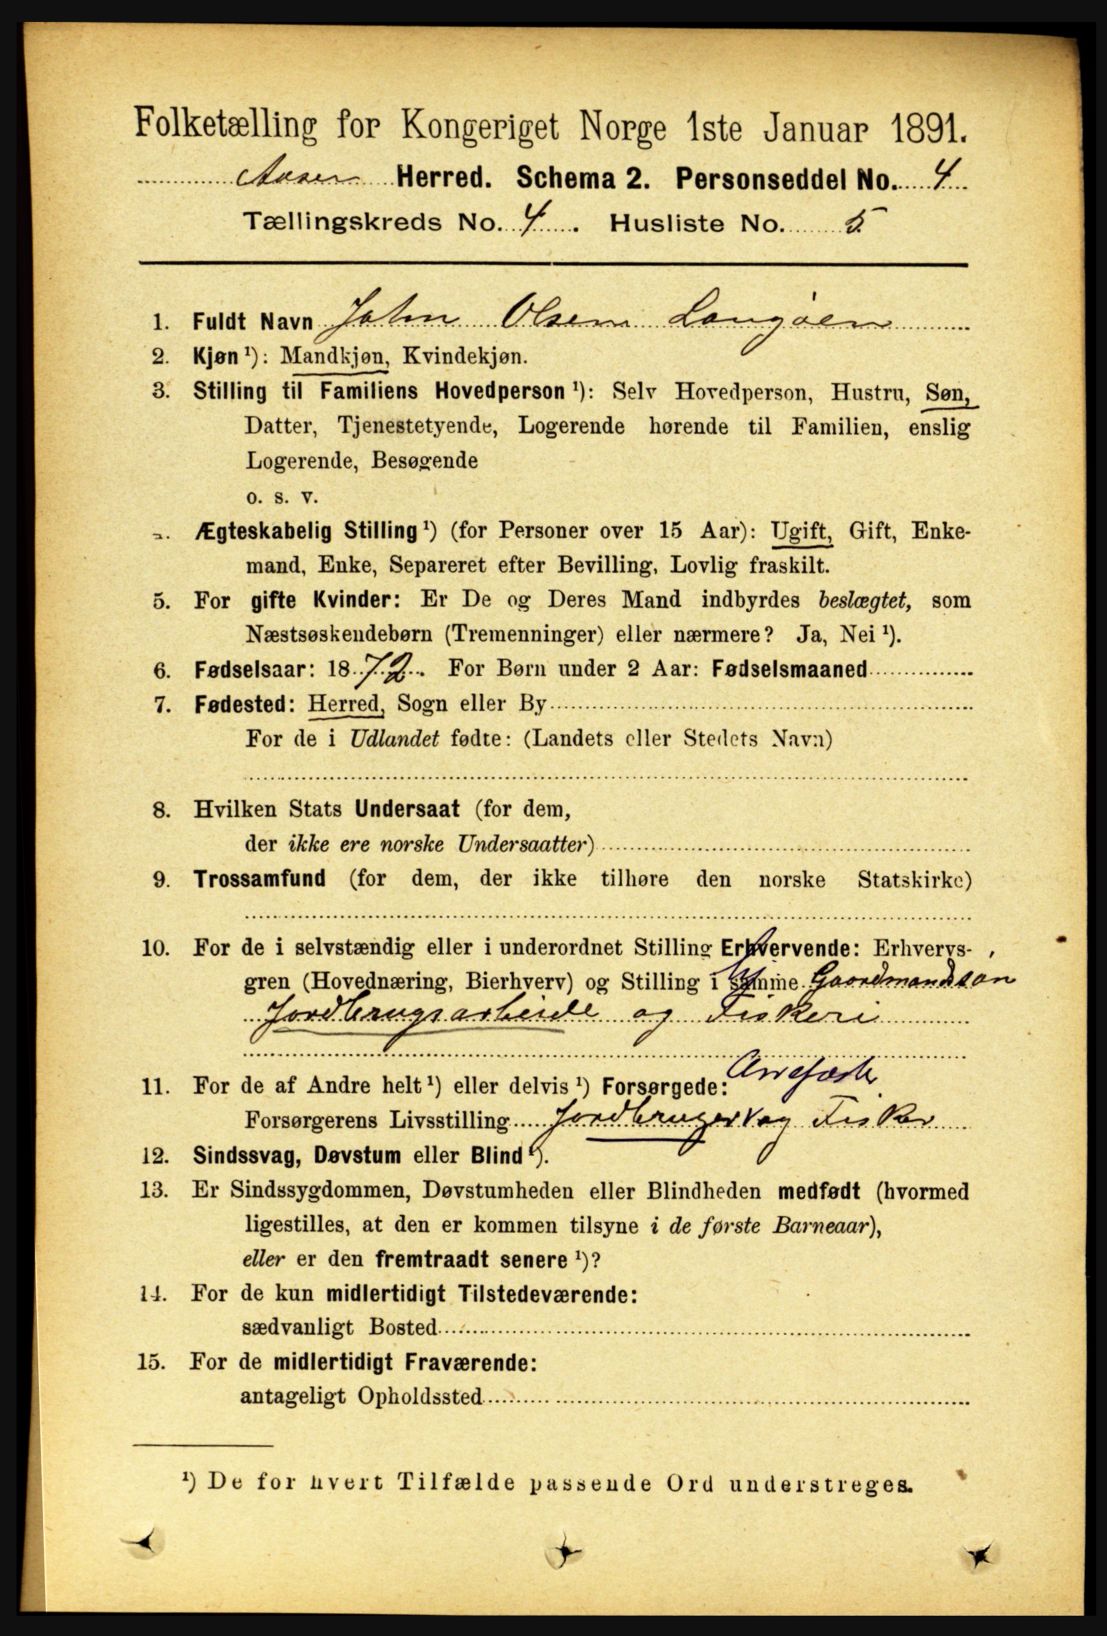 Folketælling for Kongeriget Norge 1ste Januar 1891.
Herred. Schema 2. Personseddel No. 4
Tællingskreds No. 4. Husliste No. 5.
1. Fuldt Navn John Olsen Langøen
2. Kjøn ¹): Mandkjøn, Kvindekjøn.
3. Stilling til Familiens Hovedperson ¹): Selv Hovedperson, Hustru, Søn,
Datter, Tjenestetyende, Logerende hørende til Familien, enslig
Logerende, Besøgende
o. s. v.
Ægteskabelig Stilling ¹) (for Personer over 15 Aar): Ugift, Gift, Enke-
mand, Enke, Separeret efter Bevilling, Lovlig fraskilt.
5. For gifte Kvinder: Er De og Deres Mand indbyrdes beslægtet, som
Næstsøskendebørn (Tremenninger) eller nærmere? Ja, Nei ¹).
6. Fødselsaar: 1872. For Børn under 2 Aar: Fødselsmaaned
7. Fødested: Herred, Sogn eller By
For de i Udlandet fødte: (Landets eller Stedets Navn)
8. Hvilken Stats Undersaat (for dem,
der ikke ere norske Undersaatter)
9. Trossamfund (for dem, der ikke tilhøre den norske Statskirke)
10. For de i selvstændig eller i underordnet Stilling Erhvervende: Erhvervs-
gren (Hovednæring, Bierhverv) og Stilling i samme Gaardmandsøn
Jordbrugsarbeide og Fiskeri
11. For de af Andre helt ¹) eller delvis ¹) Forsørgede:
Forsørgerens Livsstilling Jordbruger og Fisker
12. Sindssvag, Døvstum eller Blind ¹).
13. Er Sindssygdommen, Døvstumheden eller Blindheden medfødt (hvormed
ligestilles, at den er kommen tilsyne i de første Barneaar),
eller er den fremtraadt senere ¹)?
14. For de kun midlertidigt Tilstedeværende:
sædvanligt Bosted
15. For de midlertidigt Fraværende:
antageligt Opholdssted
¹) De for hvert Tilfælde passende Ord understreges.